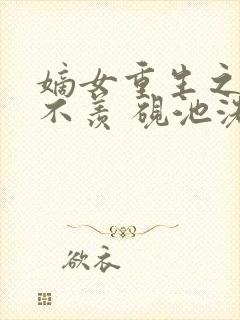 嫡女重生之
不羡 砚池深
欲衣